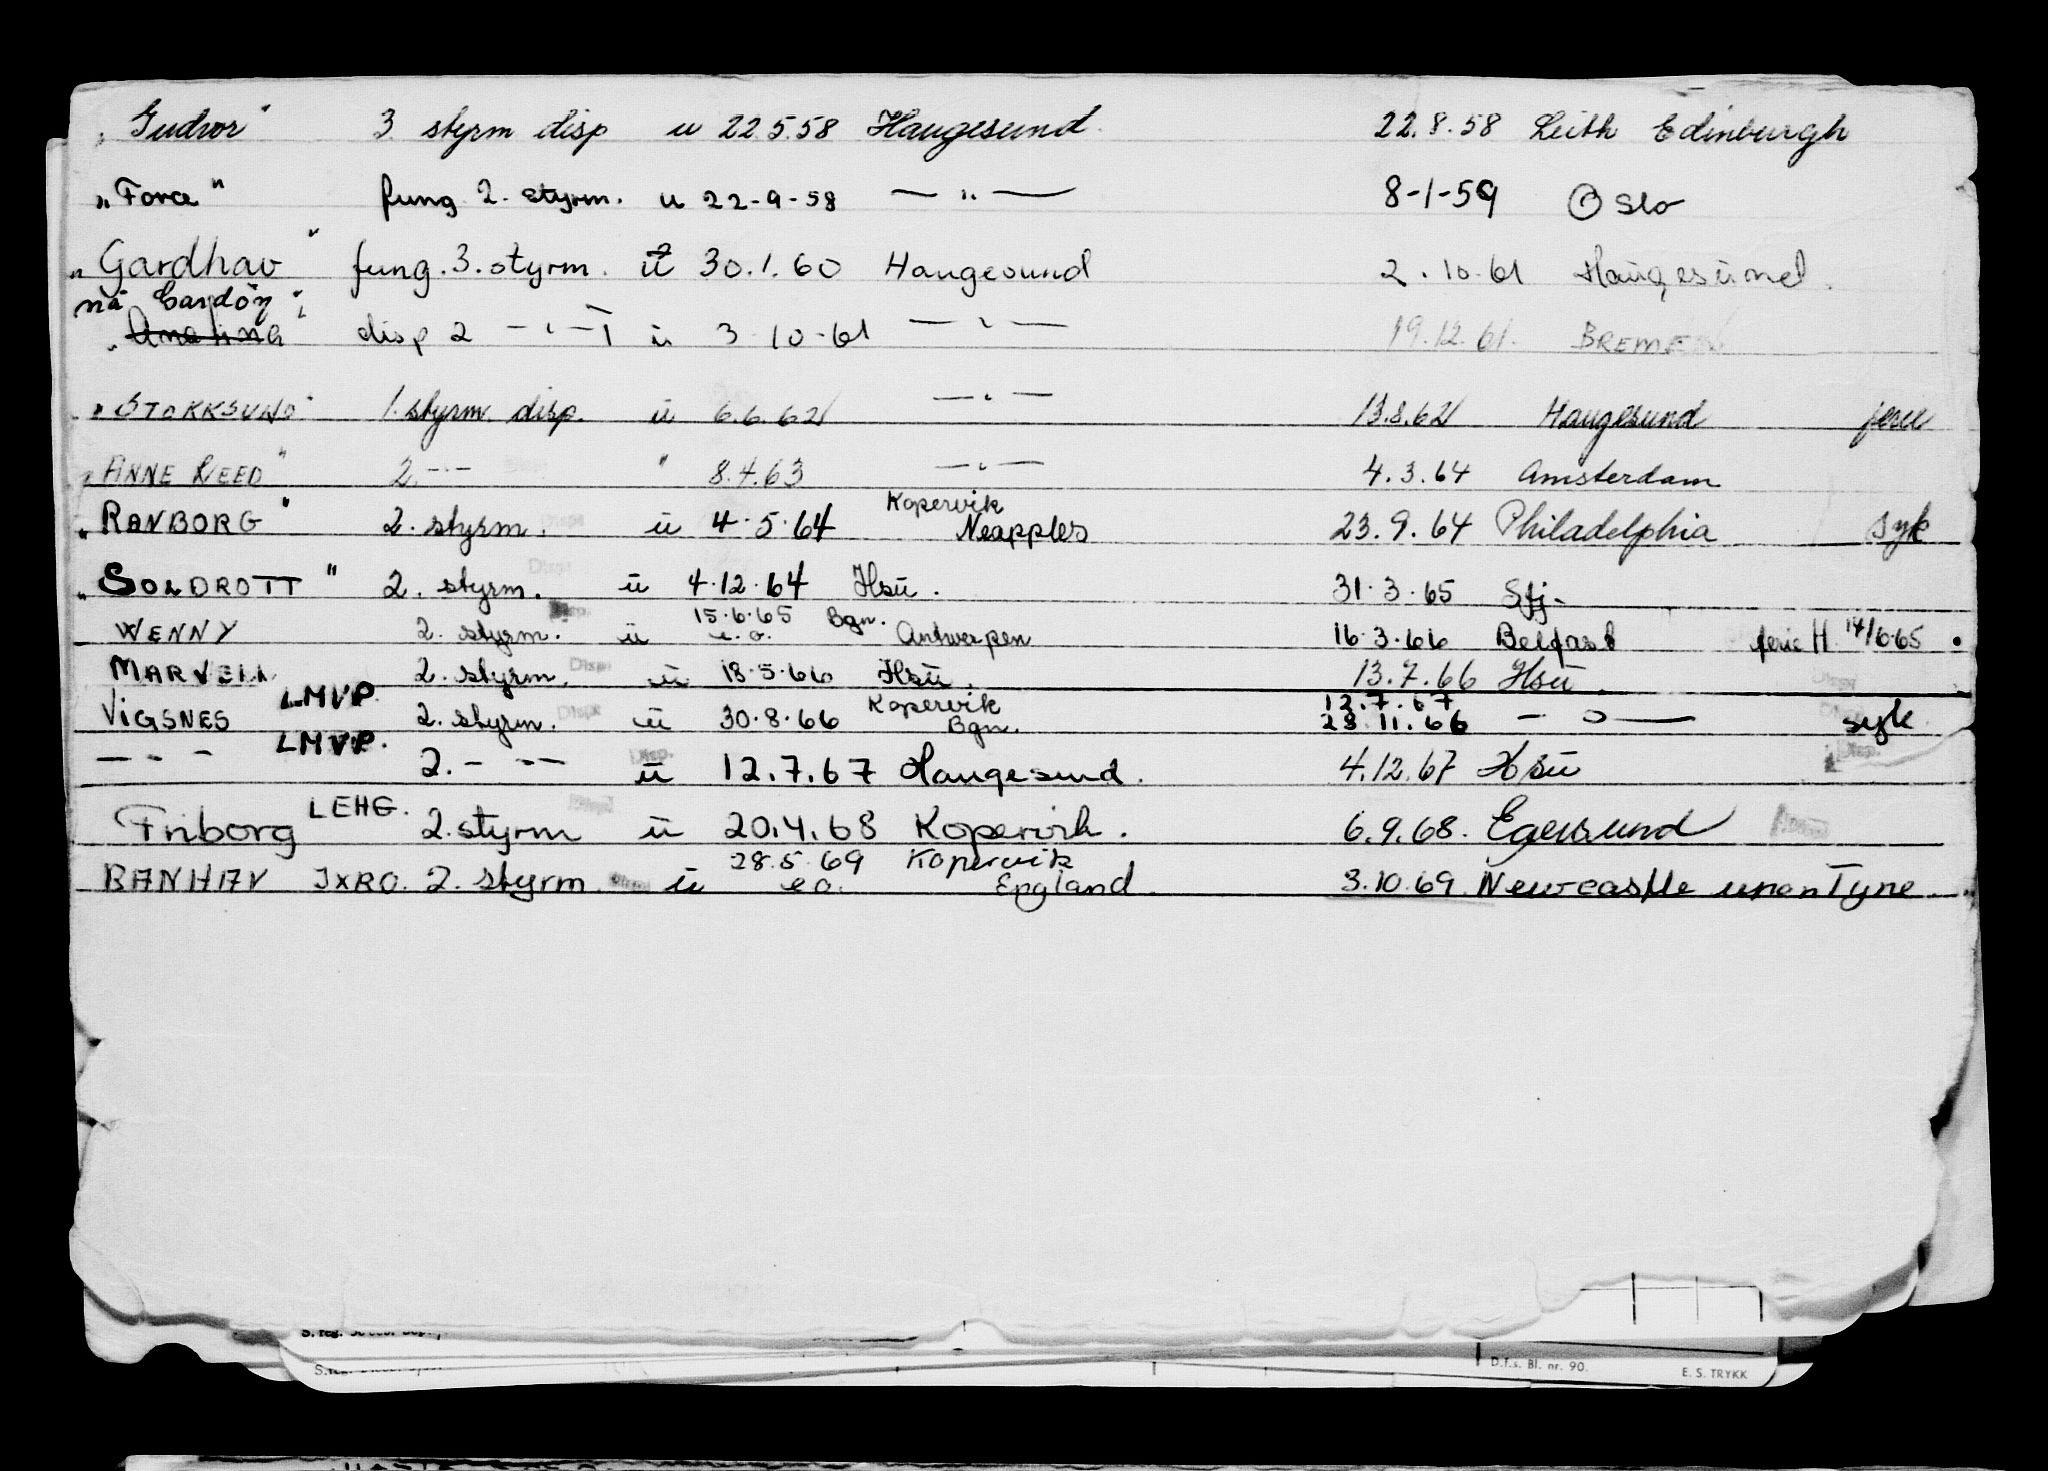 "Gudvor" 3 styrm disp u 22.5.58 Haugesund. 22.8.58 Leith Edinburgh
"Force" fung 2. styrm. u 22-9-58 — " — 8-1-59 Oslo
"Gardhav" fung. 3. styrm. u 30.1.60 Haugesund 2.10.61 Haugesund.
nå
disp 2 — " — u 3-10-61 — " — 19.12.61. BREMEN
"STOKKSUND" 1. styrm. disp. u 6.6.62 — " — 13.8.62 Haugesund ferie
"ANNE REED" 2. - " - " 8.4.63 — " — 4.3.64 Amsterdam
Kopervik
"RANBORG" 2. styrm. Disp. u 4.5.64 Neapples 23.9.64 Philadelphia syk
"SOLDROTT" 2. styrm. Disp. u 4.12.64 Hsu. 31.3.65 Sfj-
15.6.65 Bgn.
WENNY 2. styrm. u e.o. Antwerpen 16.3.66 Belfast ferie H 14/6.65
MARVELL 2. styrm. Disp u 18.5.66 Hsu. 13.7.66 Hsu
LMVP Kopervik 12.7.67
VIGSNES 2. styrm. Disp u 30.8.66 Bgn. 23.11.66 — " — syk
LMVP.
— " — 2. - " - Disp. u 12.7.67 Haugesund. 4.12.67 Hsu Disp.
LEHG.
Friborg 2. styrm Disp u 20.4.68 Kopervik. 6.9.68. Egersund
28.5.69 Kopervik
RANHAV JXRO. 2. styrm. Disp u e o. England. 3.10.69 Newcastle upon Tyne.
D.f.s. Bl. nr. 90.
E. S. TRYKK